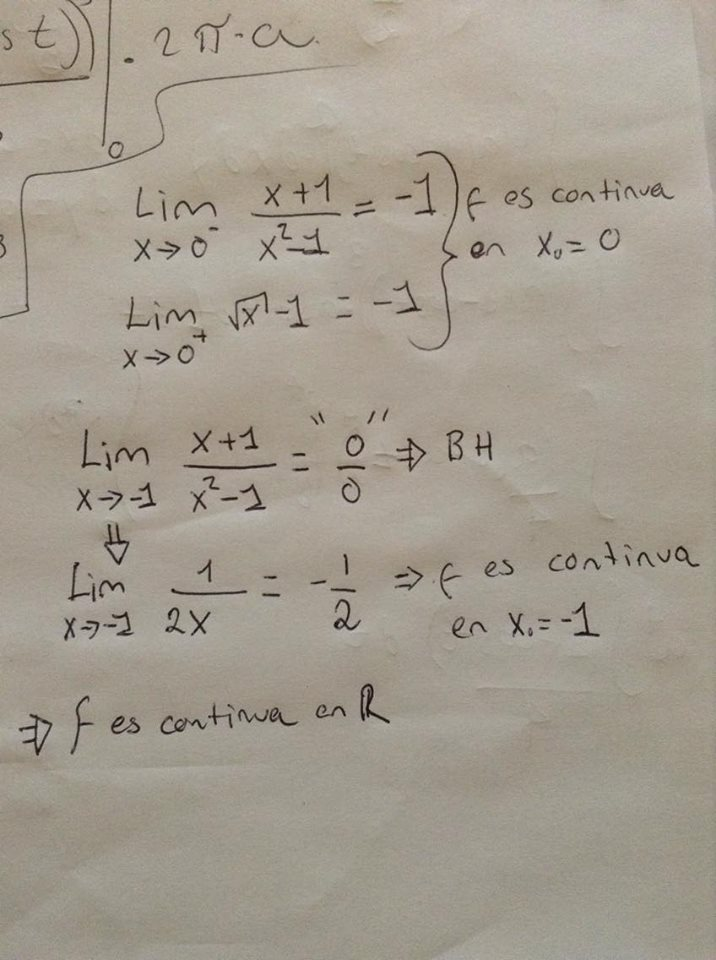 st)) | . 2π·a
0
Lim x→0⁻ (x+1)/(x²-1) = -1 } f es continua
en x₀ = 0
Lim x→0⁺ √x - 1 = -1
Lim x→-1 (x+1)/(x²-1) = "0/0" ⇒ BH
⇓
Lim x→-1 1/(2x) = -1/2 ⇒ f es continua
en x₀ = -1
⇒ f es continua en ℝ